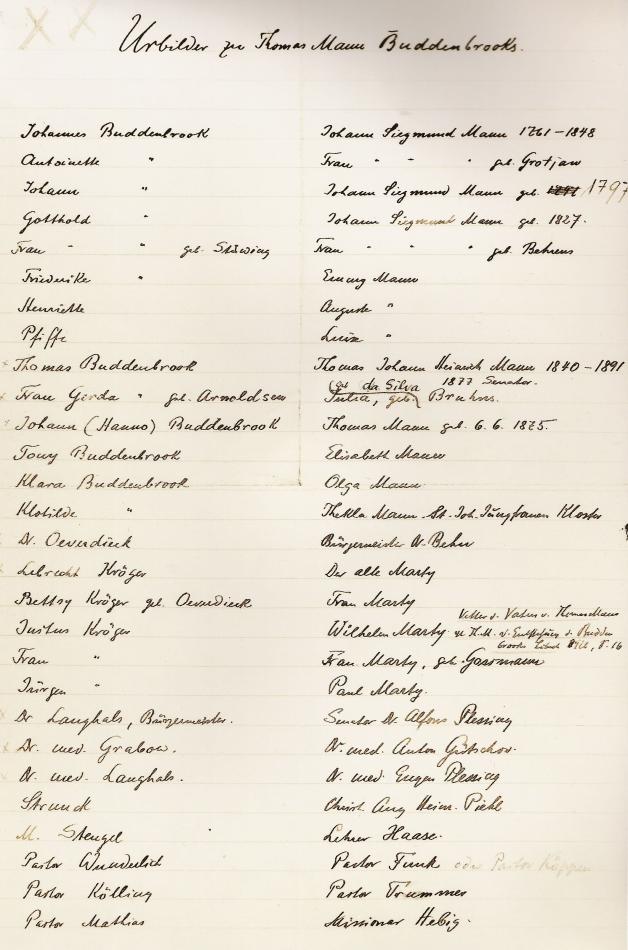 Urbilder zu Thomas Mann Buddenbrooks.
Johannes Buddenbrook Johann Siegmund Mann 1761-1848
Antoinette " Frau " " " geb. Grotjan
Johann " Johann Siegmund Mann geb. 1797
Gotthold " Johann Siegmund Mann geb. 1827.
Frau " " geb. Stüwing Frau " " " geb. Behrens
Friederike " Emmy Mann
Henriette Auguste "
Pfiffi Luise "
Thomas Buddenbrook Thomas Johann Heinrich Mann 1840-1891
(geb. da Silva 1877 Senator.
Frau Gerda " geb. Arnoldsen Julia, geb. Bruhns.
Johann (Hanno) Buddenbrook Thomas Mann geb. 6.6.1875.
Tony Buddenbrook Elisabeth Mann
Klara Buddenbrook Olga Mann
Klotilde " Thekla Mann St. Joh. Jungfrauen Kloster
Dr. Oeverdieck Bürgermeister Dr. Behn
Lebrecht Kröger Der alte Marty
Bettsy Kröger geb. Oeverdieck Frau Marty
Vetter v. Vaters v. Thomas Mann
Justus Kröger Wilhelm Marty
Frau " Frau Marty, geb. Gossmann
Jürgen " Paul Marty.
Dr Langhals, Bürgermeister. Senator Dr. Alfons Plessing
Dr. med. Grabow. Dr. med. Anton Gütschow.
Dr. med. Langhals. Dr. med. Eugen Plessing
Strunck Christ. Aug. Heinr. Piehl
M. Stengel Lehrer Haase.
Pastor Wunderlich Pastor Funk oder Pastor Köppen
Pastor Kölling Pastor Trummer
Pastor Mathias Missionar Hebig.